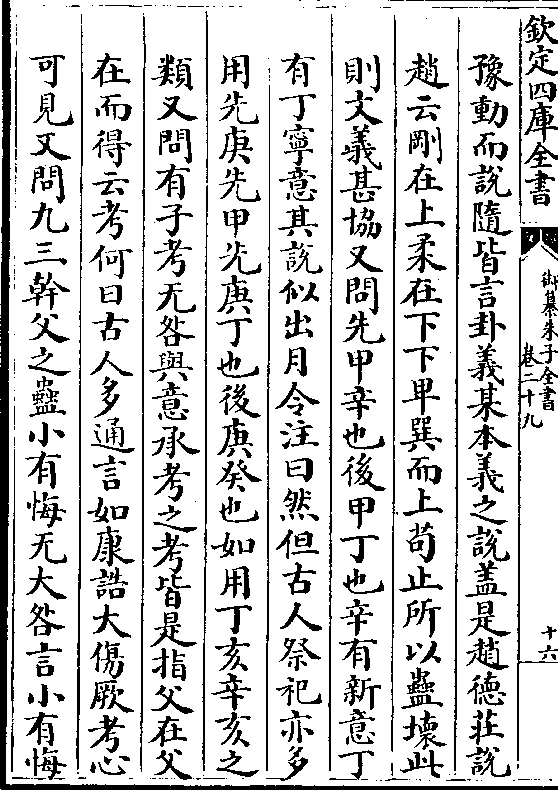 欽定四庫全書
御纂朱子全書
卷二十九
十六
豫動而說隨皆言卦義某本義之說蓋是趙德莊說
趙云剛在上柔在下下卑巽而上苟止所以蠱壞此
則文義甚協又問先甲辛也後甲丁也辛有新意丁
有丁寧意其說似出月令注曰然但古人祭祀亦多
用先庚先甲先庚丁也後庚癸也如用丁亥辛亥之
類又問有子考无咎與意承考之考皆是指父在父
在而得云考何曰古人多通言如康誥大傷厥考心
可見又問九三幹父之蠱小有悔无大咎言小有悔